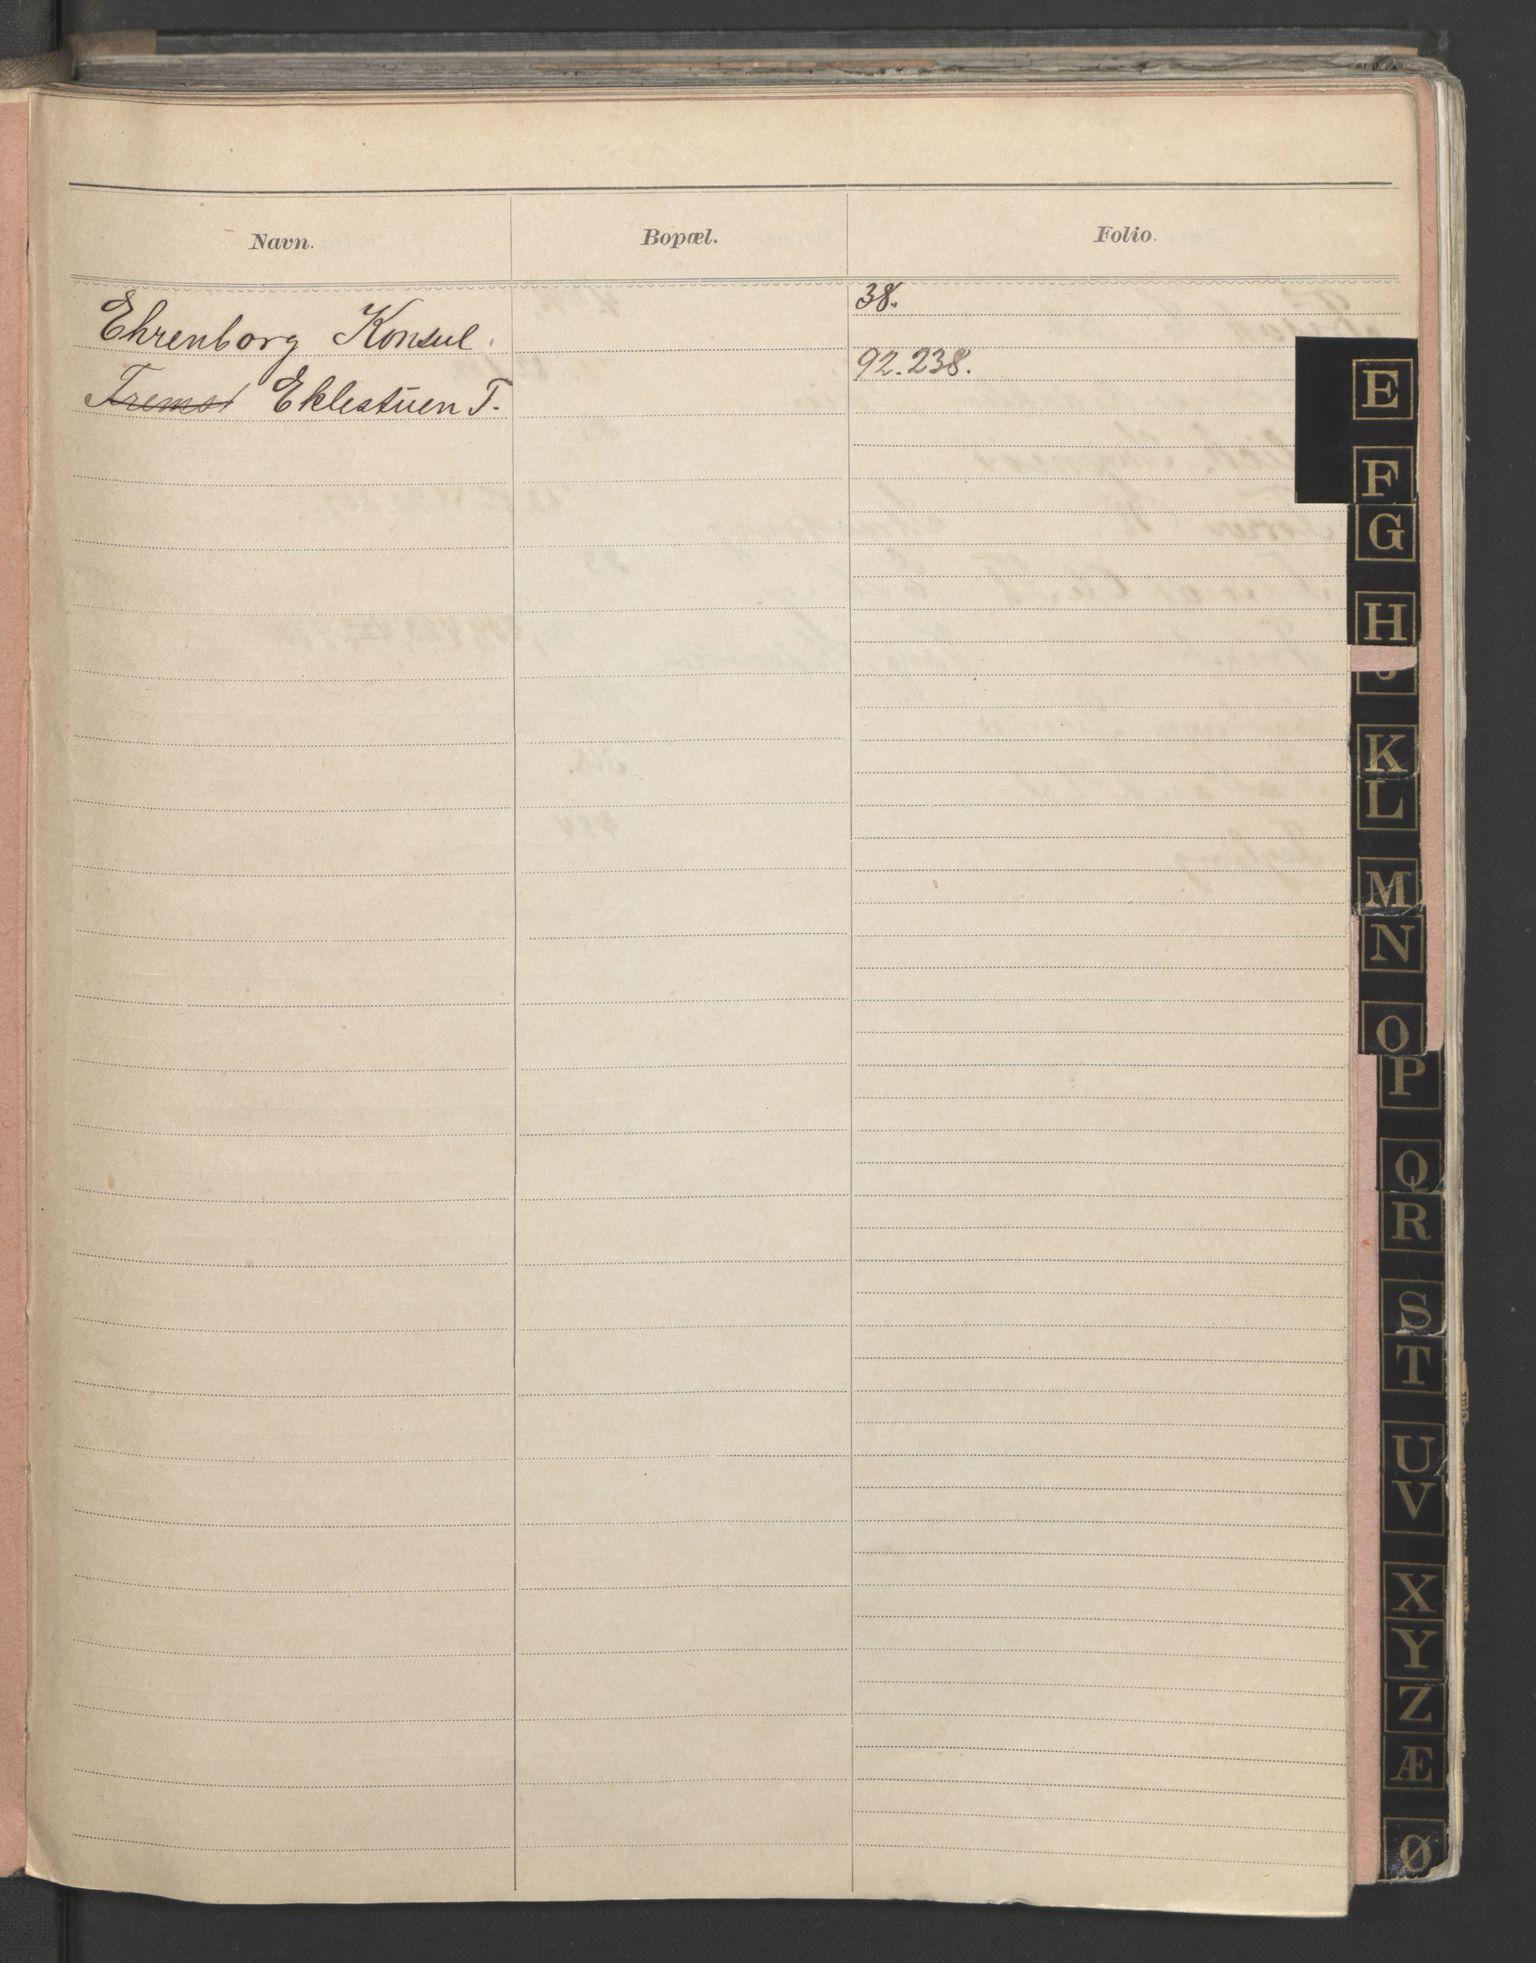 Navn. Bopæl. Folio.
Ehrenborg Konsul. 38.
Eklestuen T. 92. 238.
E
F
G
H
J
K
L
M
N
O
P
Q
R
S
T
U
V
X
Y
Z
Æ
Ø